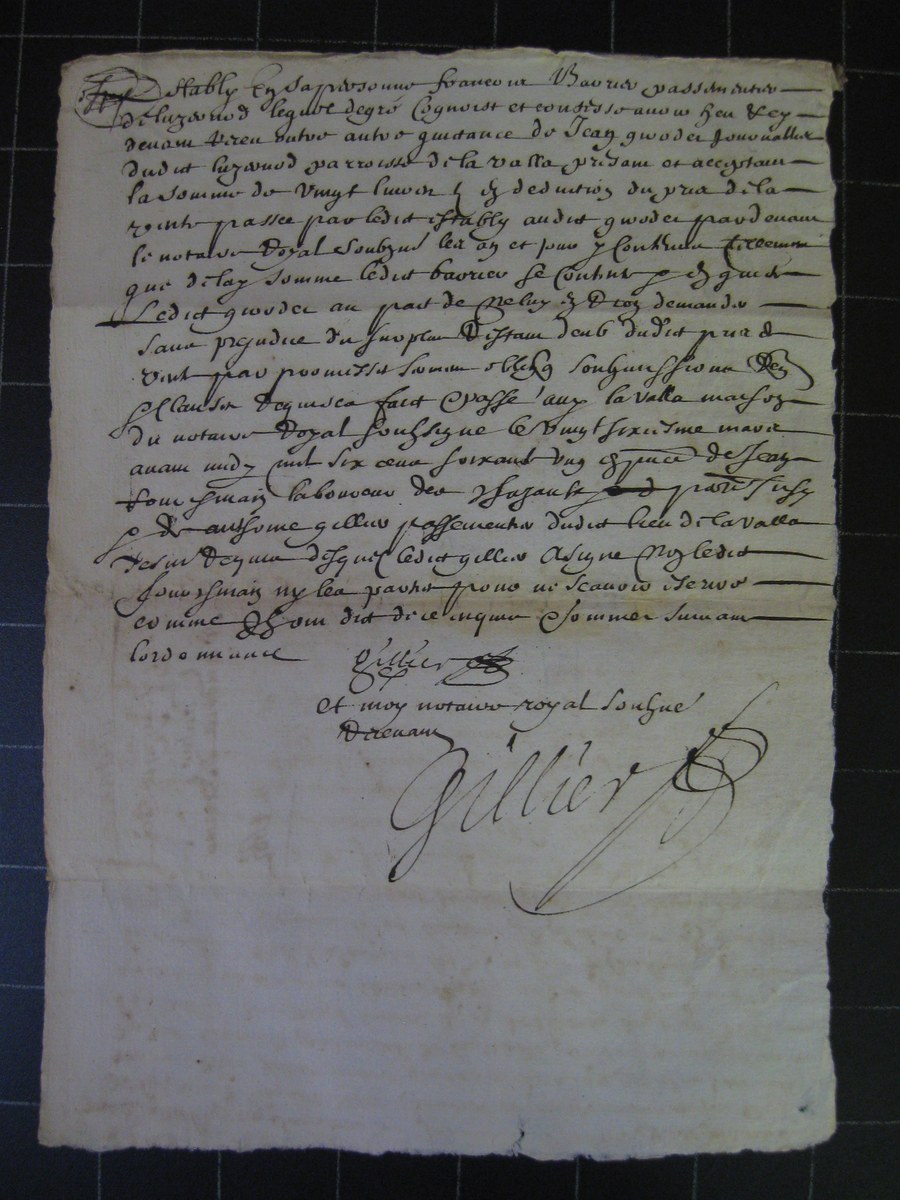 Estably En sa personne francois Barrier passementier
de luzernod lequel de gré Cognoist et confesse avoir heu & cy
devant receu outre autre quictance de Jean gwodei Journallier
dudit luzernod parroisse de la valla present et acceptant
la somme de vingt livres en deduction du prix de la
vente passée par ledit estably audit gwodei pardevant
le notaire Royal soubzné les an et jour y Contenu tellement
que de lad somme ledit barrier se Contente et en quicte
Ledit gwodei au pact de ne luy en rien demander
sans prejudice du surplus restant deub dudit prix de
vente par promesse serment oblig soubmissions Ren
clauses requises faict & passé aud la valla maison
du notaire Royal soubsigné le vingt sixiesme mars
avant midy mil six cens soixante ung en pnce de Jean
laboureur des
de anthome gillier passementier dudit lieu de la valla
tesm requis desquels ledit gillier a signé Non ledit
ny les parties pour ne scavoir escrire
comme ont dit de ce enquis & sommes suivant
lordonnance gillier
et moy notaire royal soubzné
recevant
Gillier